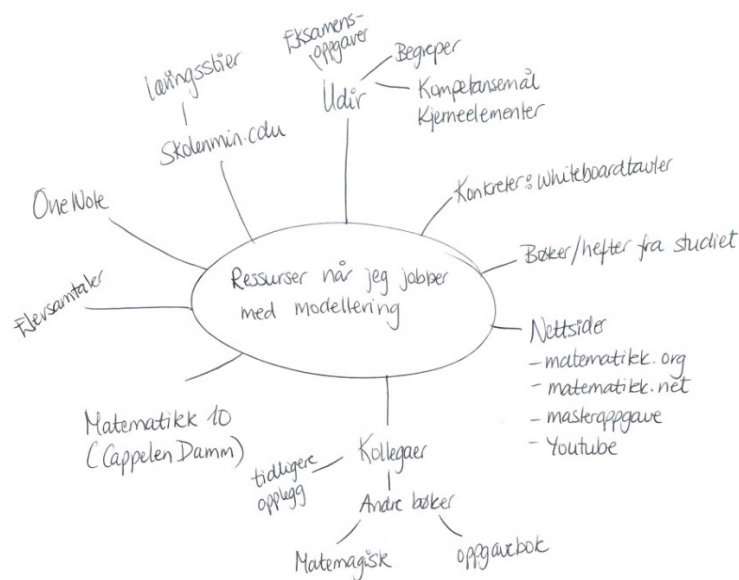 Ressurser når jeg jobber
med modellering
Udir
Eksamens-
oppgaver
Begreper
Kompetansemål
Kjerneelementer
Konkreter: Whiteboardtavler
Bøker/hefter fra studiet
Nettsider
- matematikk.org
- matematikk.net
- masteroppgave
- Youtube
Kollegaer
tidligere
opplegg
Andre bøker
Matemagisk
oppgavebok
Matematikk 10
(Cappelen Damm)
Elevsamtaler
OneNote
Skolenmin.cdu
læringsstier